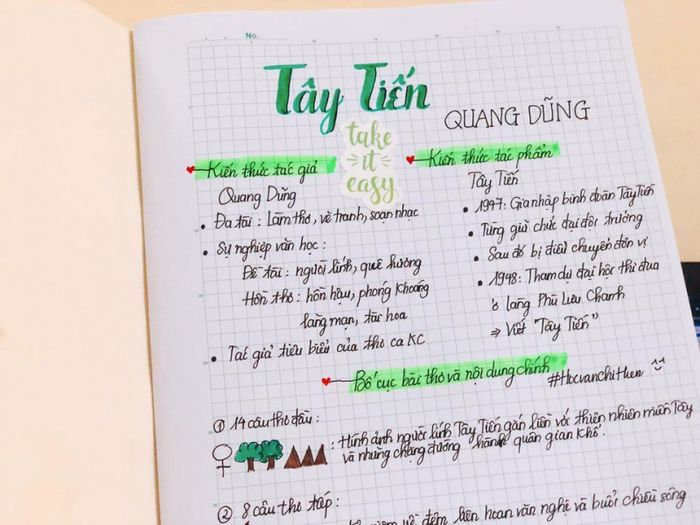 No.
Tây Tiến
QUANG DŨNG
take
it
easy
Kiến thức tác giả
Quang Dũng
• Đa tài : làm thơ, vẽ tranh, soạn nhạc
• Sự nghiệp văn học :
Đề tài : người lính, quê hương
Hồn thơ : hồn hậu, phóng khoáng
lãng mạn, tài hoa
• Tác giả tiêu biểu của thơ ca KC
Kiến thức tác phẩm
Tây Tiến
• 1947: Gia nhập binh đoàn Tây Tiến
• Từng giữ chức đại đội trưởng
• Sau đó bị điều chuyển đơn vị
• 1948: Tham dự đại hội thi đua
ở làng Phù Lưu Chanh
⇒ Viết "Tây Tiến"
Bố cục bài thơ và nội dung chính
#Hocvanchihien ^^
① 14 câu thơ đầu :
: Hình ảnh người lính Tây Tiến gắn liền với thiên nhiên miền Tây
và những chặng đường hành quân gian khổ.
② 8 câu thơ tiếp :
niệm về đêm liên hoan văn nghệ và buổi chiều sông